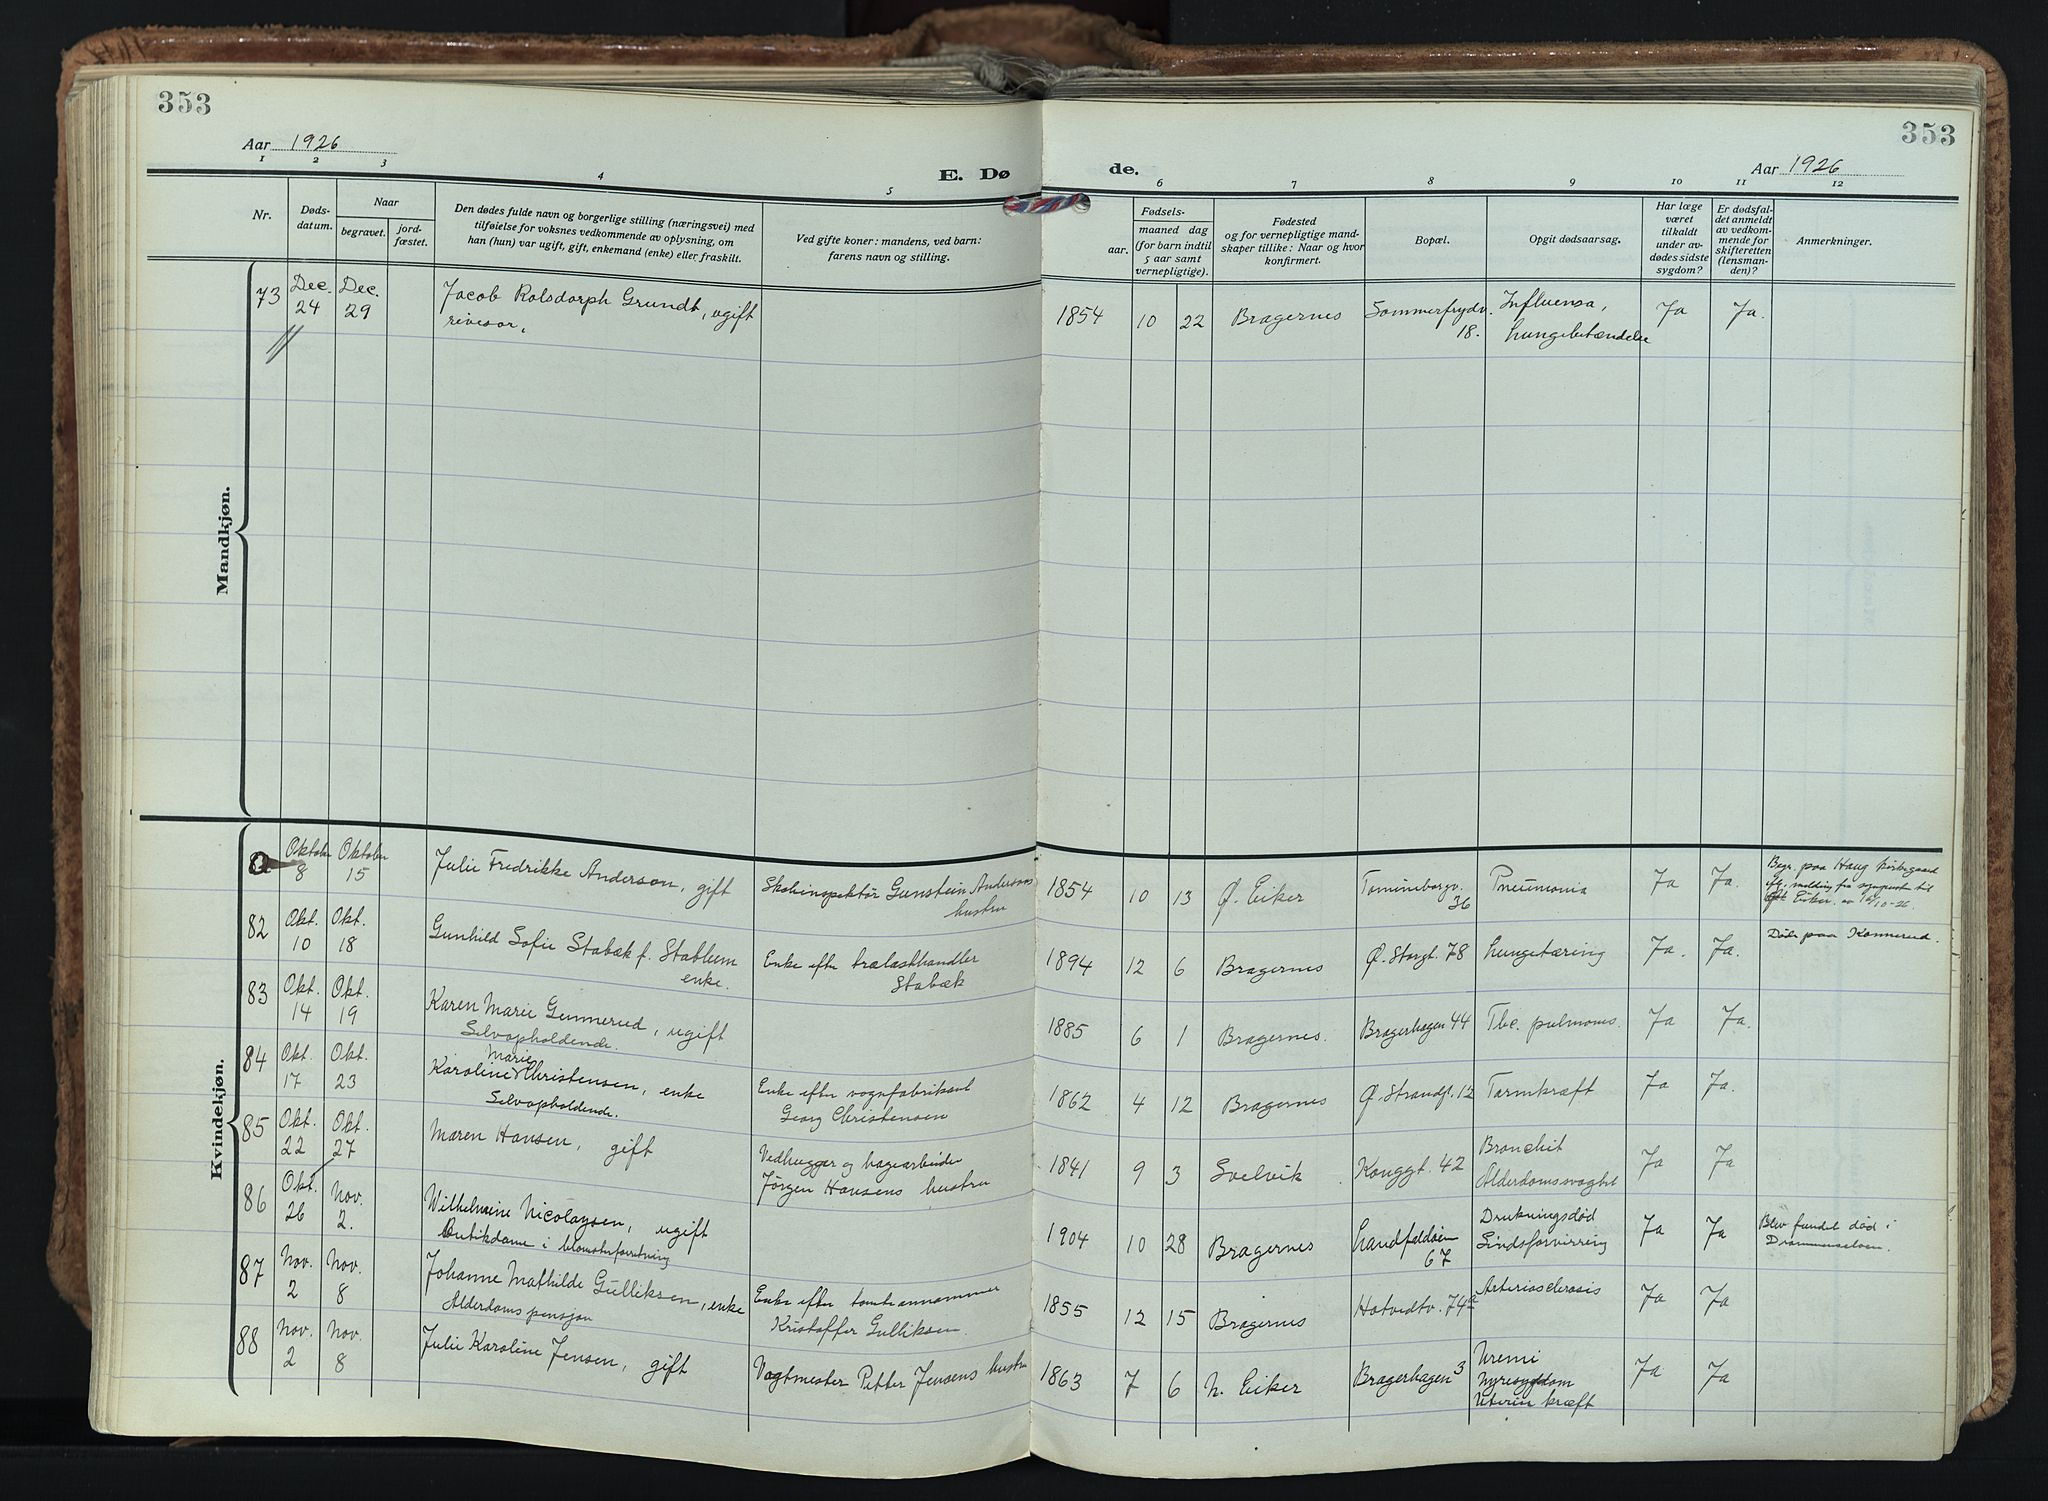 353
353
Aar 1926
E. Dø
de.
Aar 1926
1 2 3 4 5 6 7 8 9 10 11 12
Nr.
Døds-
datum.
Naar
begravet.
jord-
fæstet.
Den dødes fulde navn og borgerlige stilling (næringsvei) med
tilføielse for voksnes vedkommende av oplysning, om
han (hun) var ugift, gift, enkemand (enke) eller fraskilt.
Ved gifte koner: mandens, ved barn:
farens navn og stilling.
Fødsels-
aar.
maaned dag
(for barn indtil
5 aar samt
vernepligtige).
Fødested
og for vernepligtige mand-
skaper tillike: Naar og hvor
konfirmert.
Bopæl.
Opgit dødsaarsag.
Har læge
været
tilkaldt
under av-
dødes sidste
sygdom?
Er dødsfal-
det anmeldt
av vedkom-
mende for
skifteretten
(lensman-
den)?
Anmerkninger.
Mandkjøn.
73 Dec. 24 Dec. 29 Jacob Rolsdorph Grundt, ugift
revisor,
1854 10 22 Bragernes Sommerfrydv. 18. Influensa,
Lungebetændelse Ja Ja.
Kvindekjøn.
Oktober 8 Oktober 15 Julie Fredrikke Anderson, gift
Skoleinspektør Gunstein Andersons
hustru
1854 10 13 Ø. Eiker Tomineborgv. 36 Pneumonia Ja Ja.
Begr. paa Haug kirkegaard
eft. melding fra sogneprest til
Eiker. av 10-26.
82 Okt. 10 Okt. 18 Gunhild Sofie Stabæk f. Stabheim
enke.
Enke efter trælasthandler
Stabæk
1894 12 6 Bragernes Ø. Storgt. 78 Lungetæring Ja. Ja.
Døde paa Konnerud.
83 Okt. 14 Okt. 19 Karen Marie Gunnerud, ugift
Selvopholdende.
1885 6 1 Bragernes. Bragerhagen 44 Tbc. pulmonis. Ja Ja.
84 Okt. 17 Okt. 23 Karoline Marie Christensen, enke
Selvopholdende.
Enke efter vognfabrikant
Georg Christensen
1862 4 12 Bragernes Ø. Strandgt. 12 Tarmkræft Ja Ja.
85 Okt. 22 Okt. 27 Maren Hansen, gift
Vedhugger og havearbeider
Jørgen Hansens hustru
1841 9 3 Svelvik Konggt. 42 Bronchit
Alderdomssvaghet Ja Ja
86 Okt. 26 Nov. 2. Wilhelmine Nicolaysen, ugift
Butikdame i blomsterforretning
1904 10 28 Bragernes Landfaldøien 67 Drukningsdød
Sindsforvirring Ja Ja
Blev fundet død i
Drammenselven.
87 Nov. 2 Nov. 8 Johanne Mathilde Gulliksen, enke
Alderdoms pensjon
Enke efter tomteannammer
Kristoffer Gulliksen.
1855 12 15 Bragernes Hotvedtv. 74a Arteriosclerosis Ja Ja
88 Nov. 2 Nov. 8 Julie Karoline Jensen, gift
Vagtmester Petter Jensens hustru
1863 7 6 N. Eiker Bragerhagen 3 Uremi
Nyresygdom
Uterin kræft Ja Ja